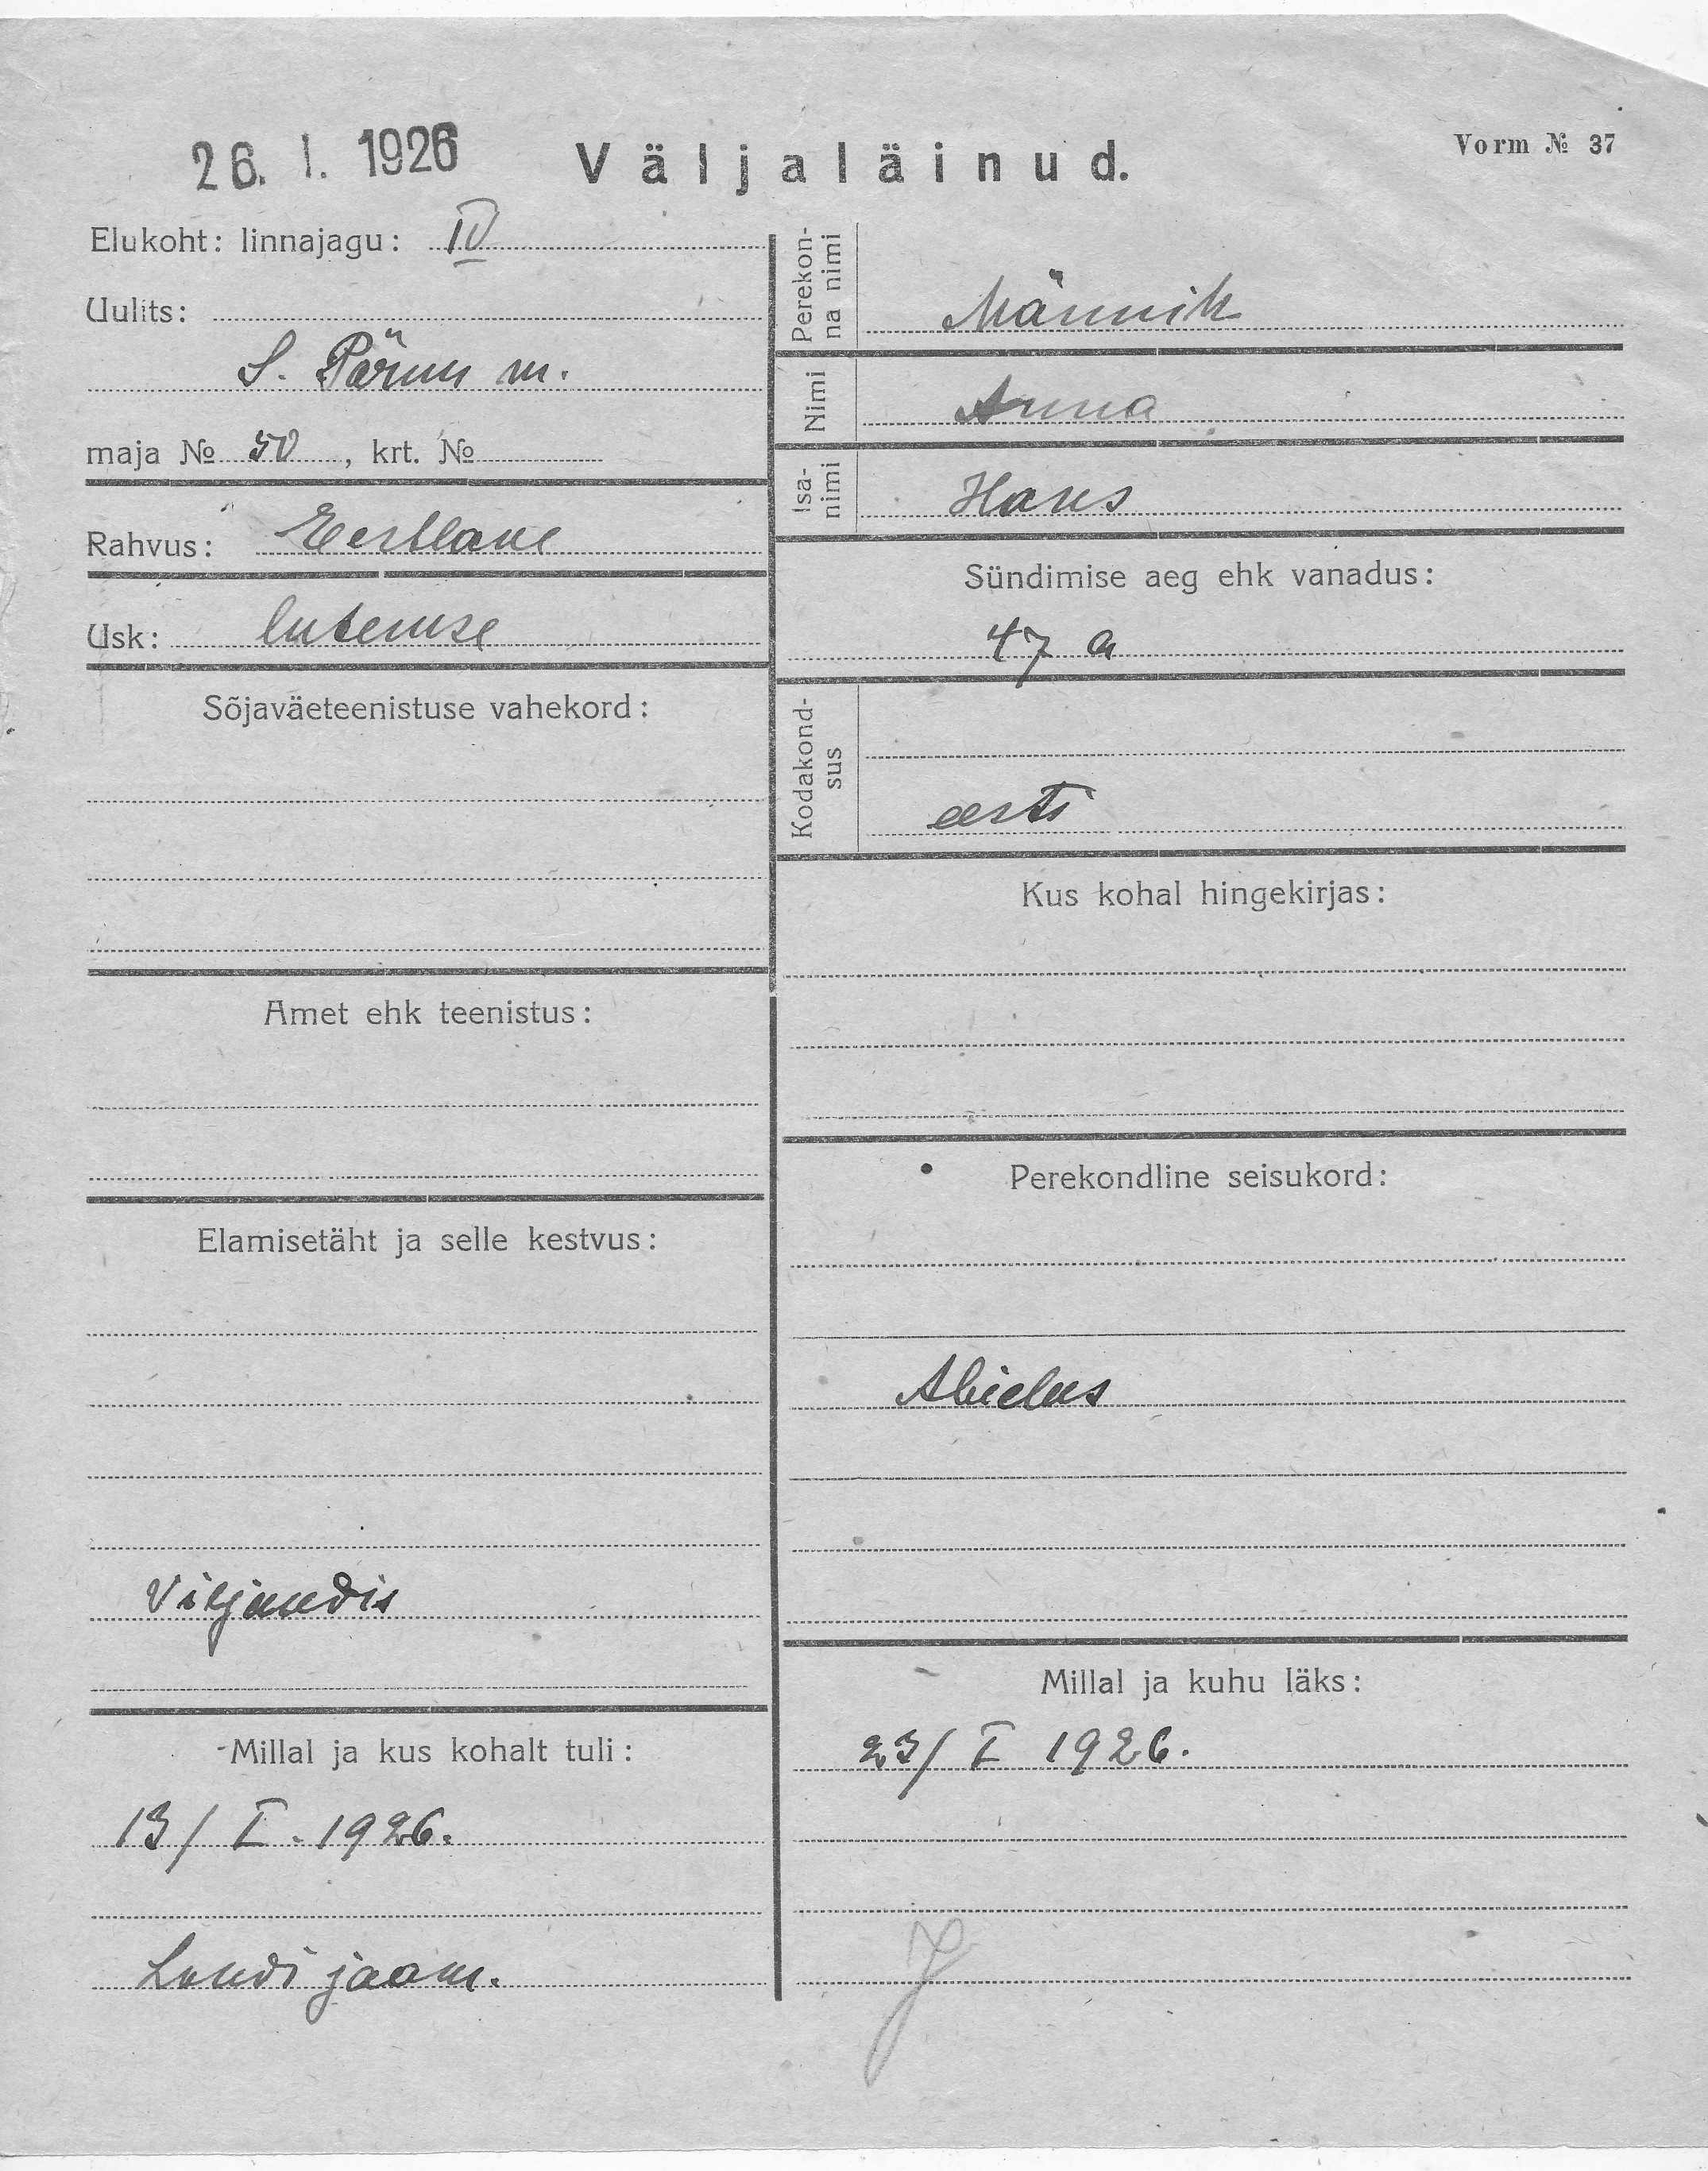 26. I. 1926
Väljaläinud.
Vorm № 37
Elukoht: linnajagu: IV
Uulits:
S. Pärnu m.
maja № 50, krt. №
Rahvus: Eestlane
Usk: luteruse
Sõjaväeteenistuse vahekord:
Amet ehk teenistus:
Elamisetäht ja selle kestvus:
Viljandis
Millal ja kus kohalt tuli:
13/I. 1926.
jaam.
Perekon-
na nimi
Männik
Nimi
Anna
Isa-
nimi
Hans
Sündimise aeg ehk vanadus:
47 a
Kodakond-
sus
eesti
Kus kohal hingekirjas:
Perekondline seisukord:
Abielus
Millal ja kuhu läks:
23/I 1926.